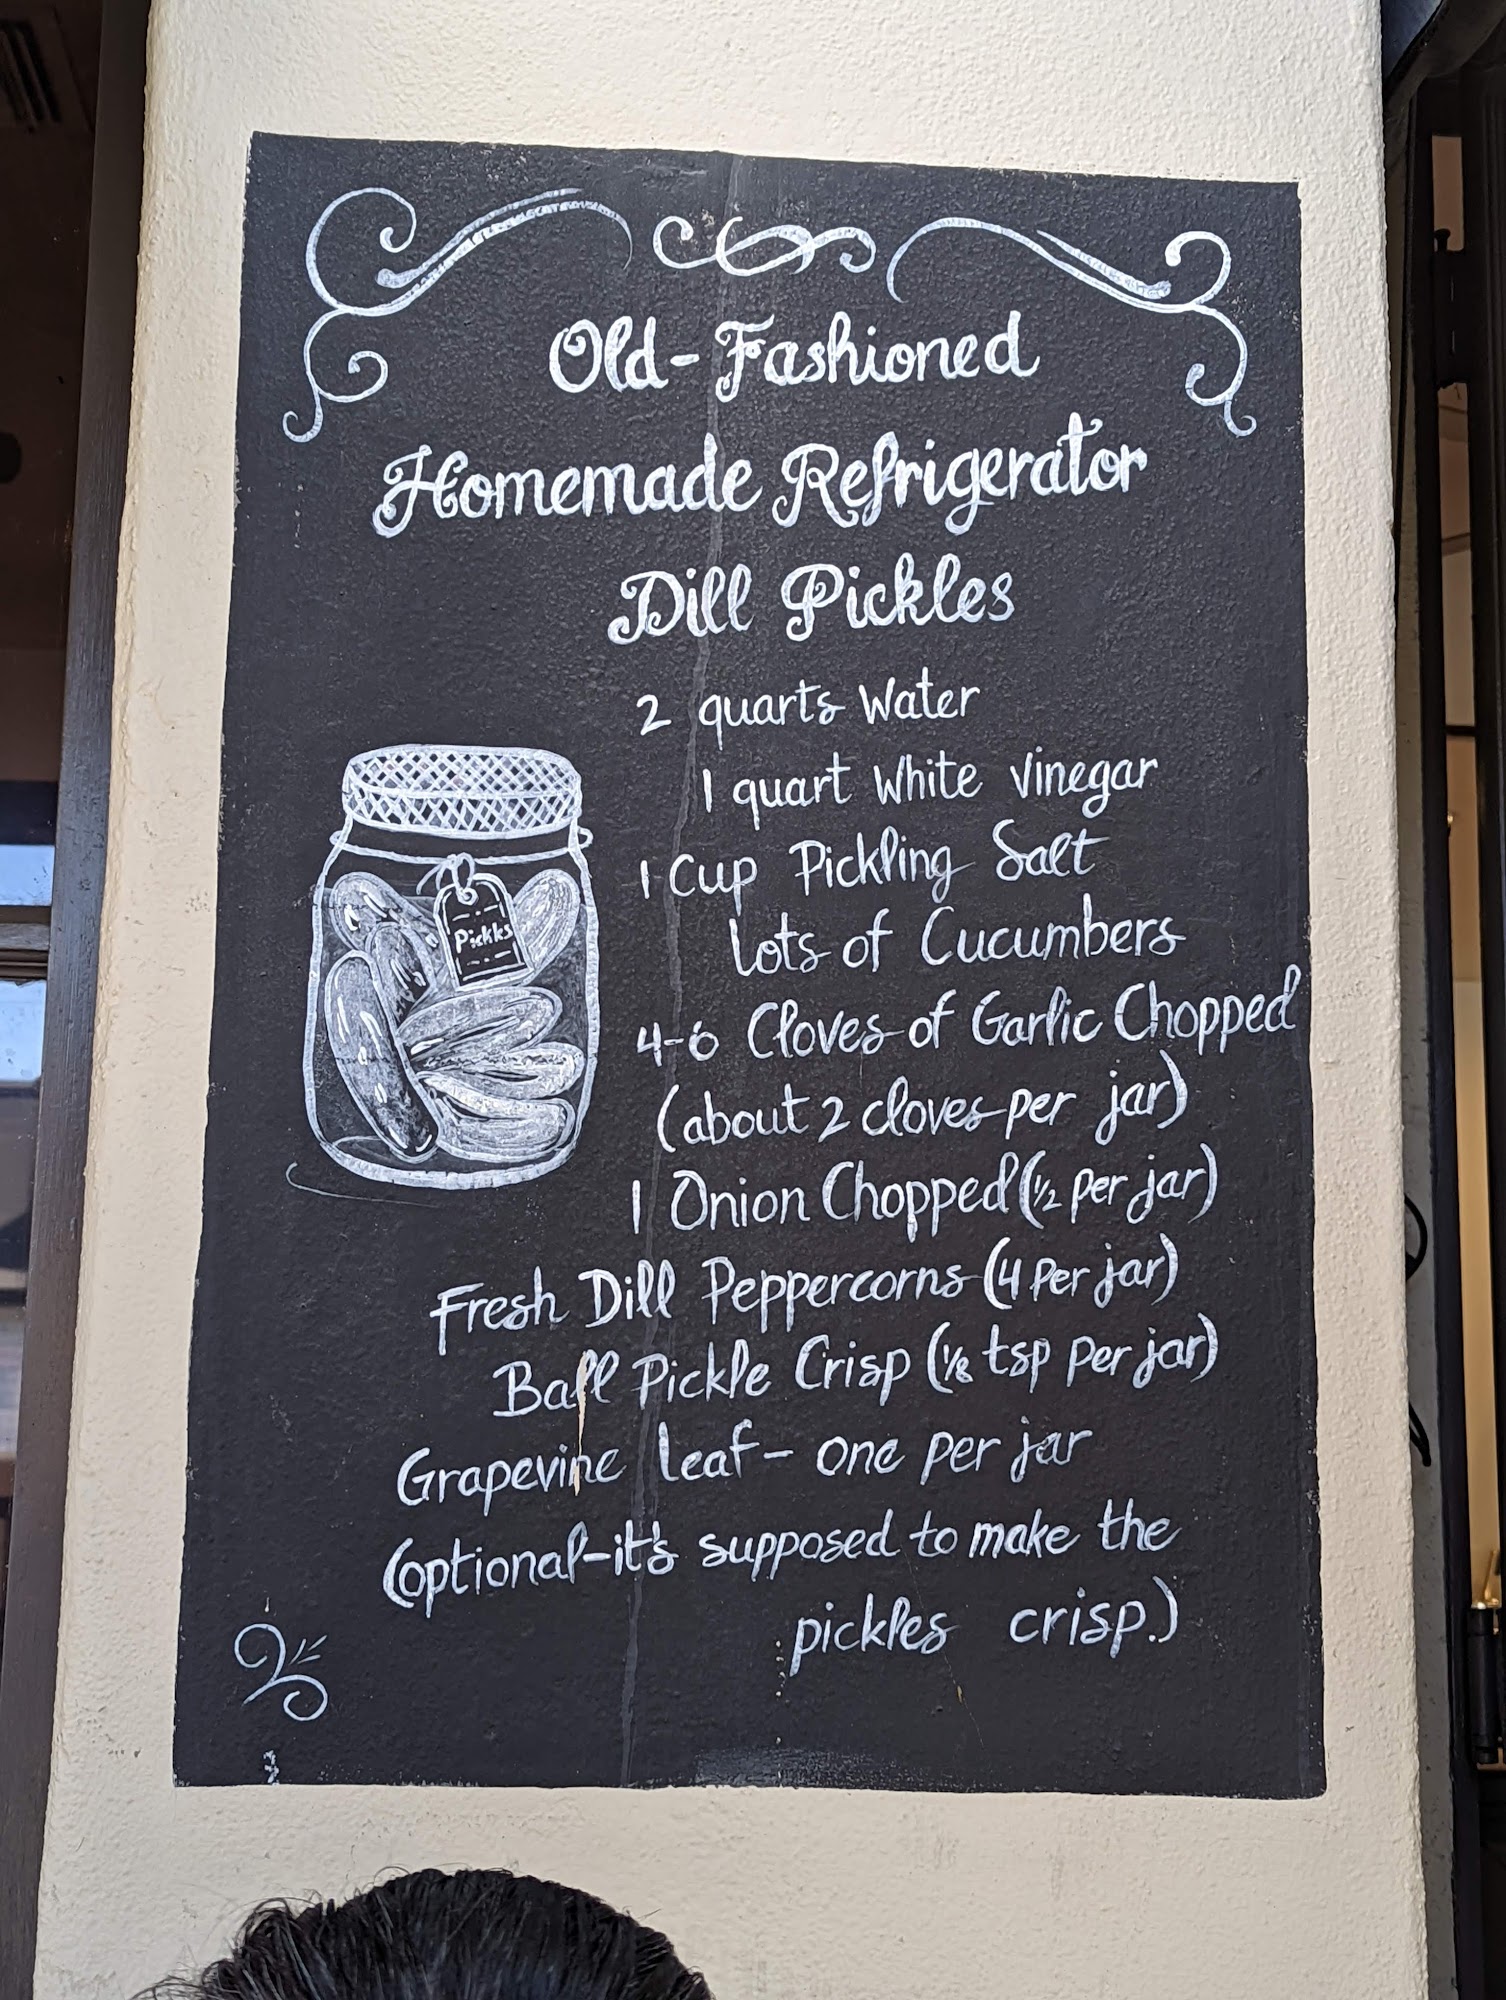 Old-Fashioned
Homemade Refrigerator
Dill Pickles
2 quarts Water
1 quart White Vinegar
1 Cup Pickling Salt
Lots of Cucumbers
4-6 Cloves of Garlic Chopped
(about 2 cloves per jar)
1 Onion Chopped (1/2 per jar)
Fresh Dill Peppercorns (4 per jar)
Ball Pickle Crisp (1/8 tsp per jar)
Grapevine Leaf - one per jar
(optional-it's supposed to make the
pickles crisp.)
Pickks